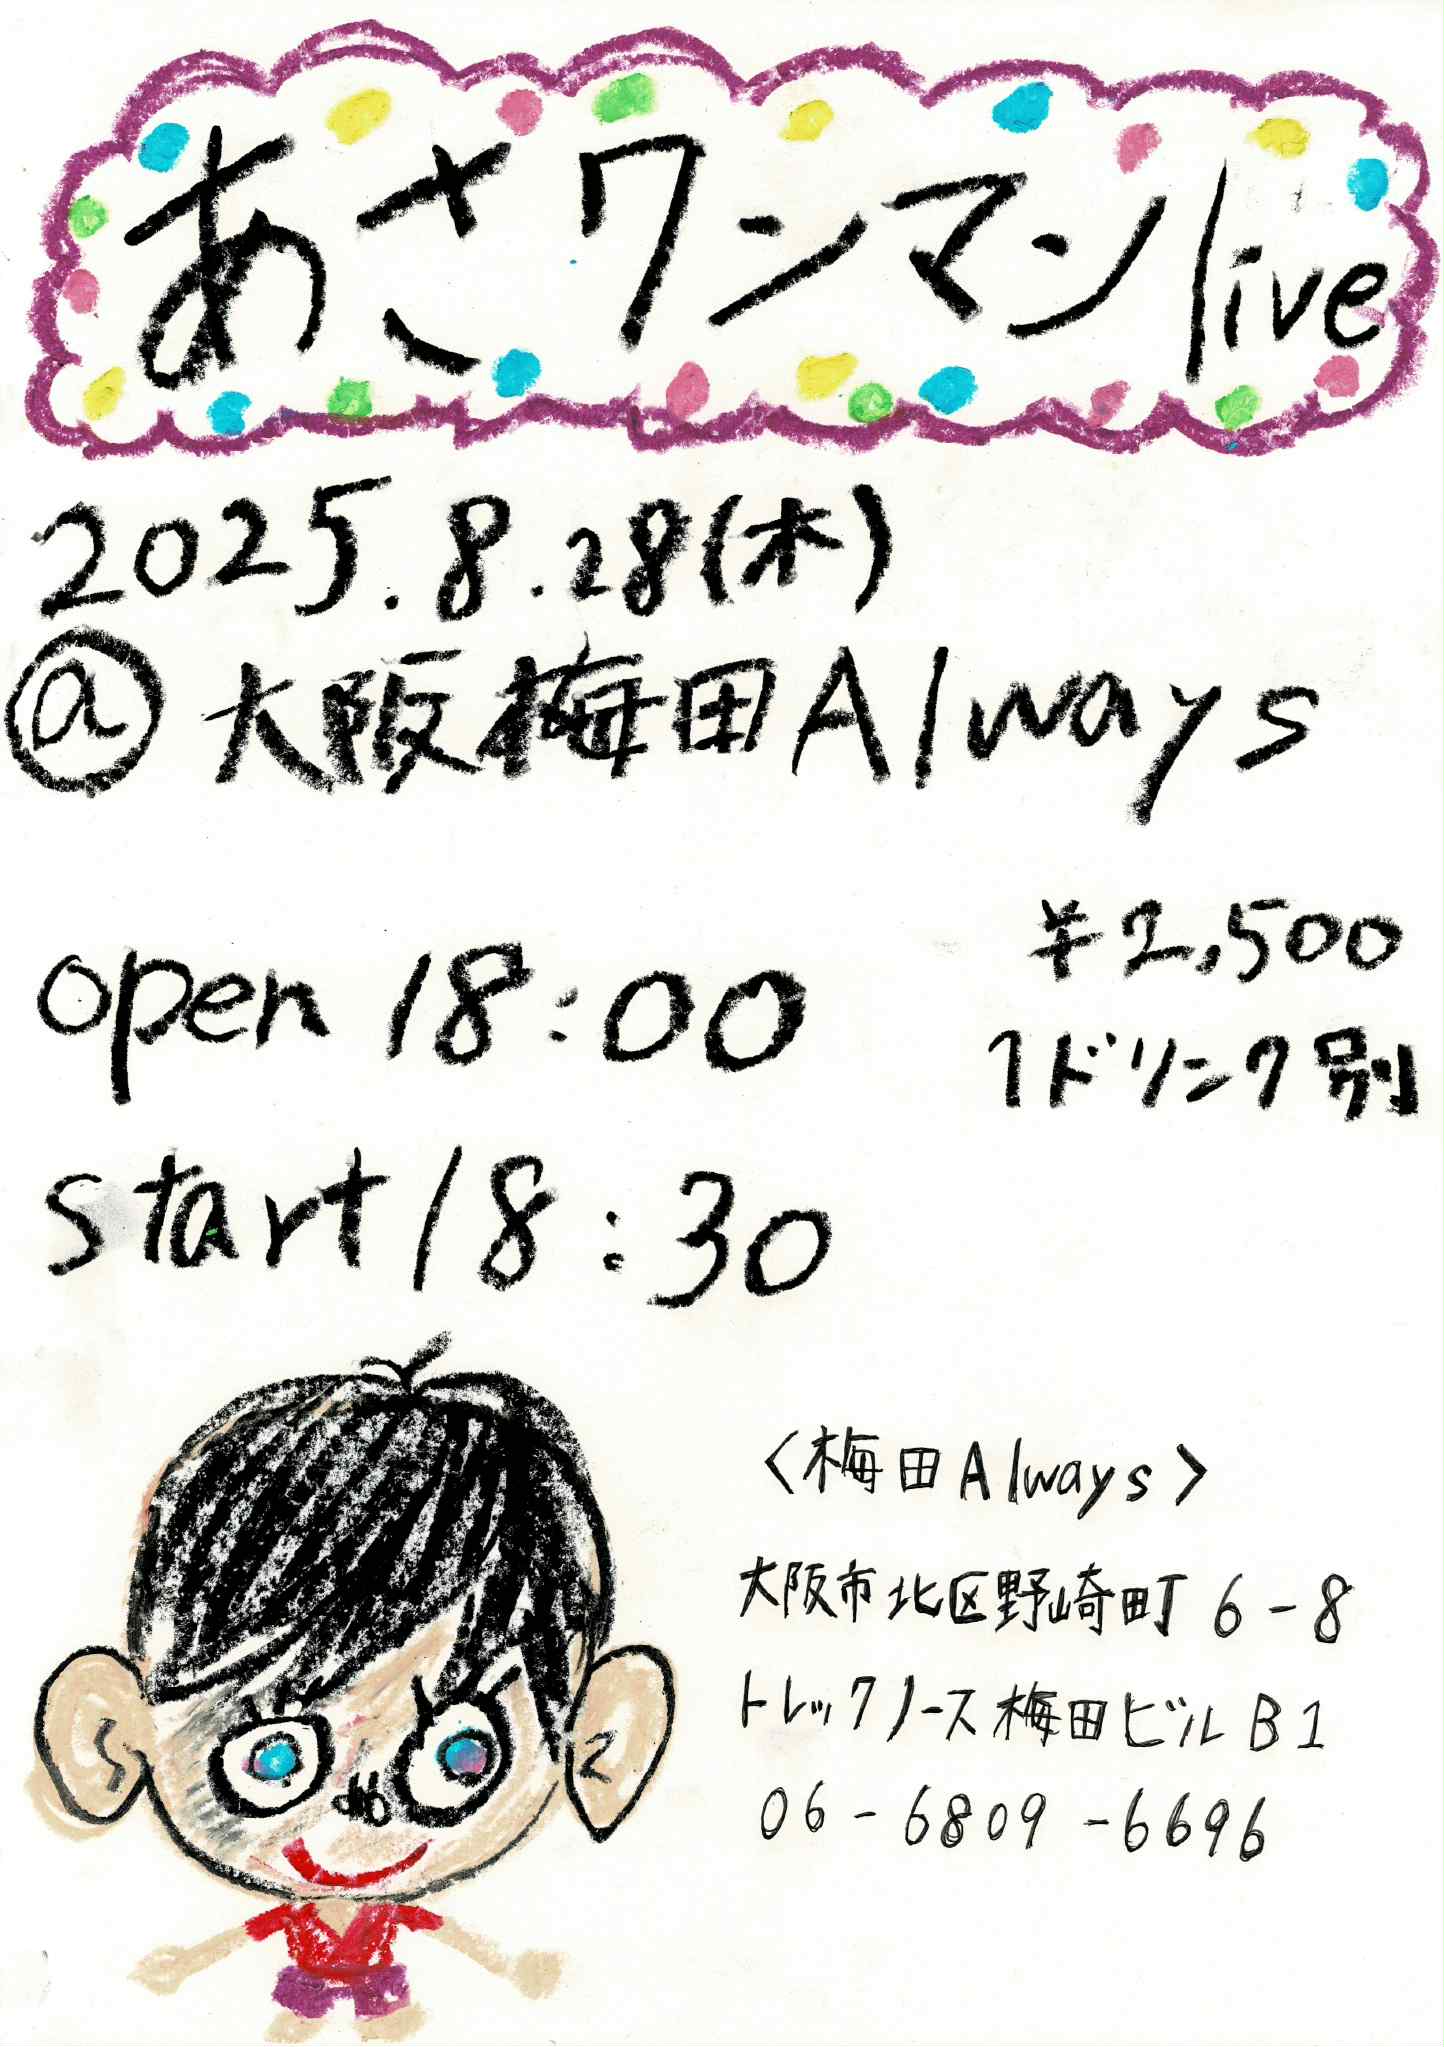 あさワンマンlive
2025.8.28(木)
@大阪梅田Always
open 18:00
¥2,500
1ドリンク別
start 18:30
<梅田Always>
大阪市北区野崎町6-8
トレックノース梅田ビルB1
06-6809-6696